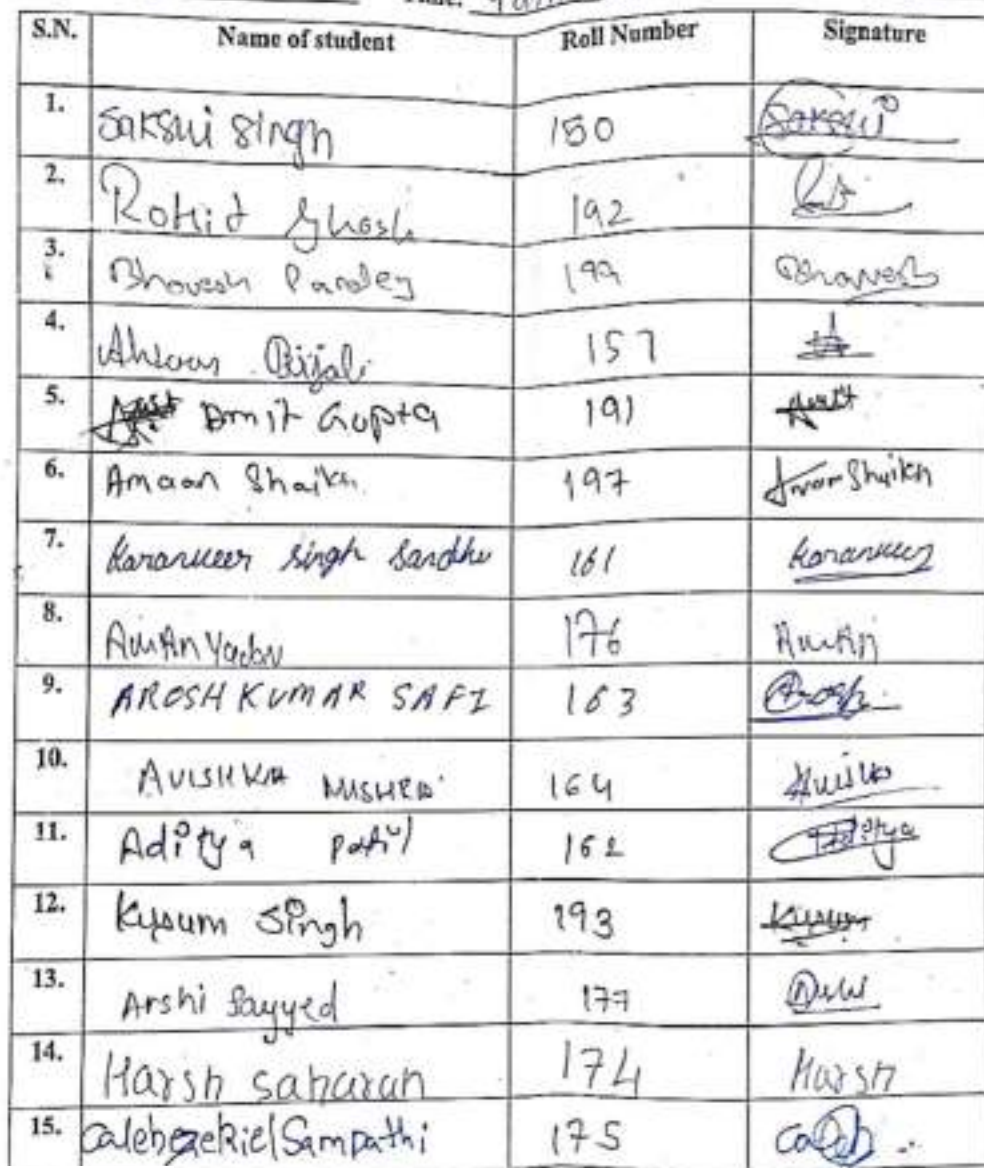 S.N. Name of student Roll Number Signature
1. Sakshi Singh 150 Sakshi
2. Rohit Ghosh 192
3. Bhavesh Pandey 199 Bhavesh
4. Ahsaan Bijali 157
5. Amit Gupta 191 Amit
6. Amaan Shaikh 197 Amaan Shaikh
7. Karanveer Singh Sandhu 161 Karanveer
8. Aman Yadav 176 Aman
9. AROSH KUMAR SAFI 163 Arosh
10. AVISHKA MISHRA 164
11. Aditya patil 162 Aditya
12. Kusum Singh 193 Kusum
13. Arshi Sayyed 177
14. Harsh saharan 174 Harsh
15. Calebezekiel Sampathi 175 Caleb